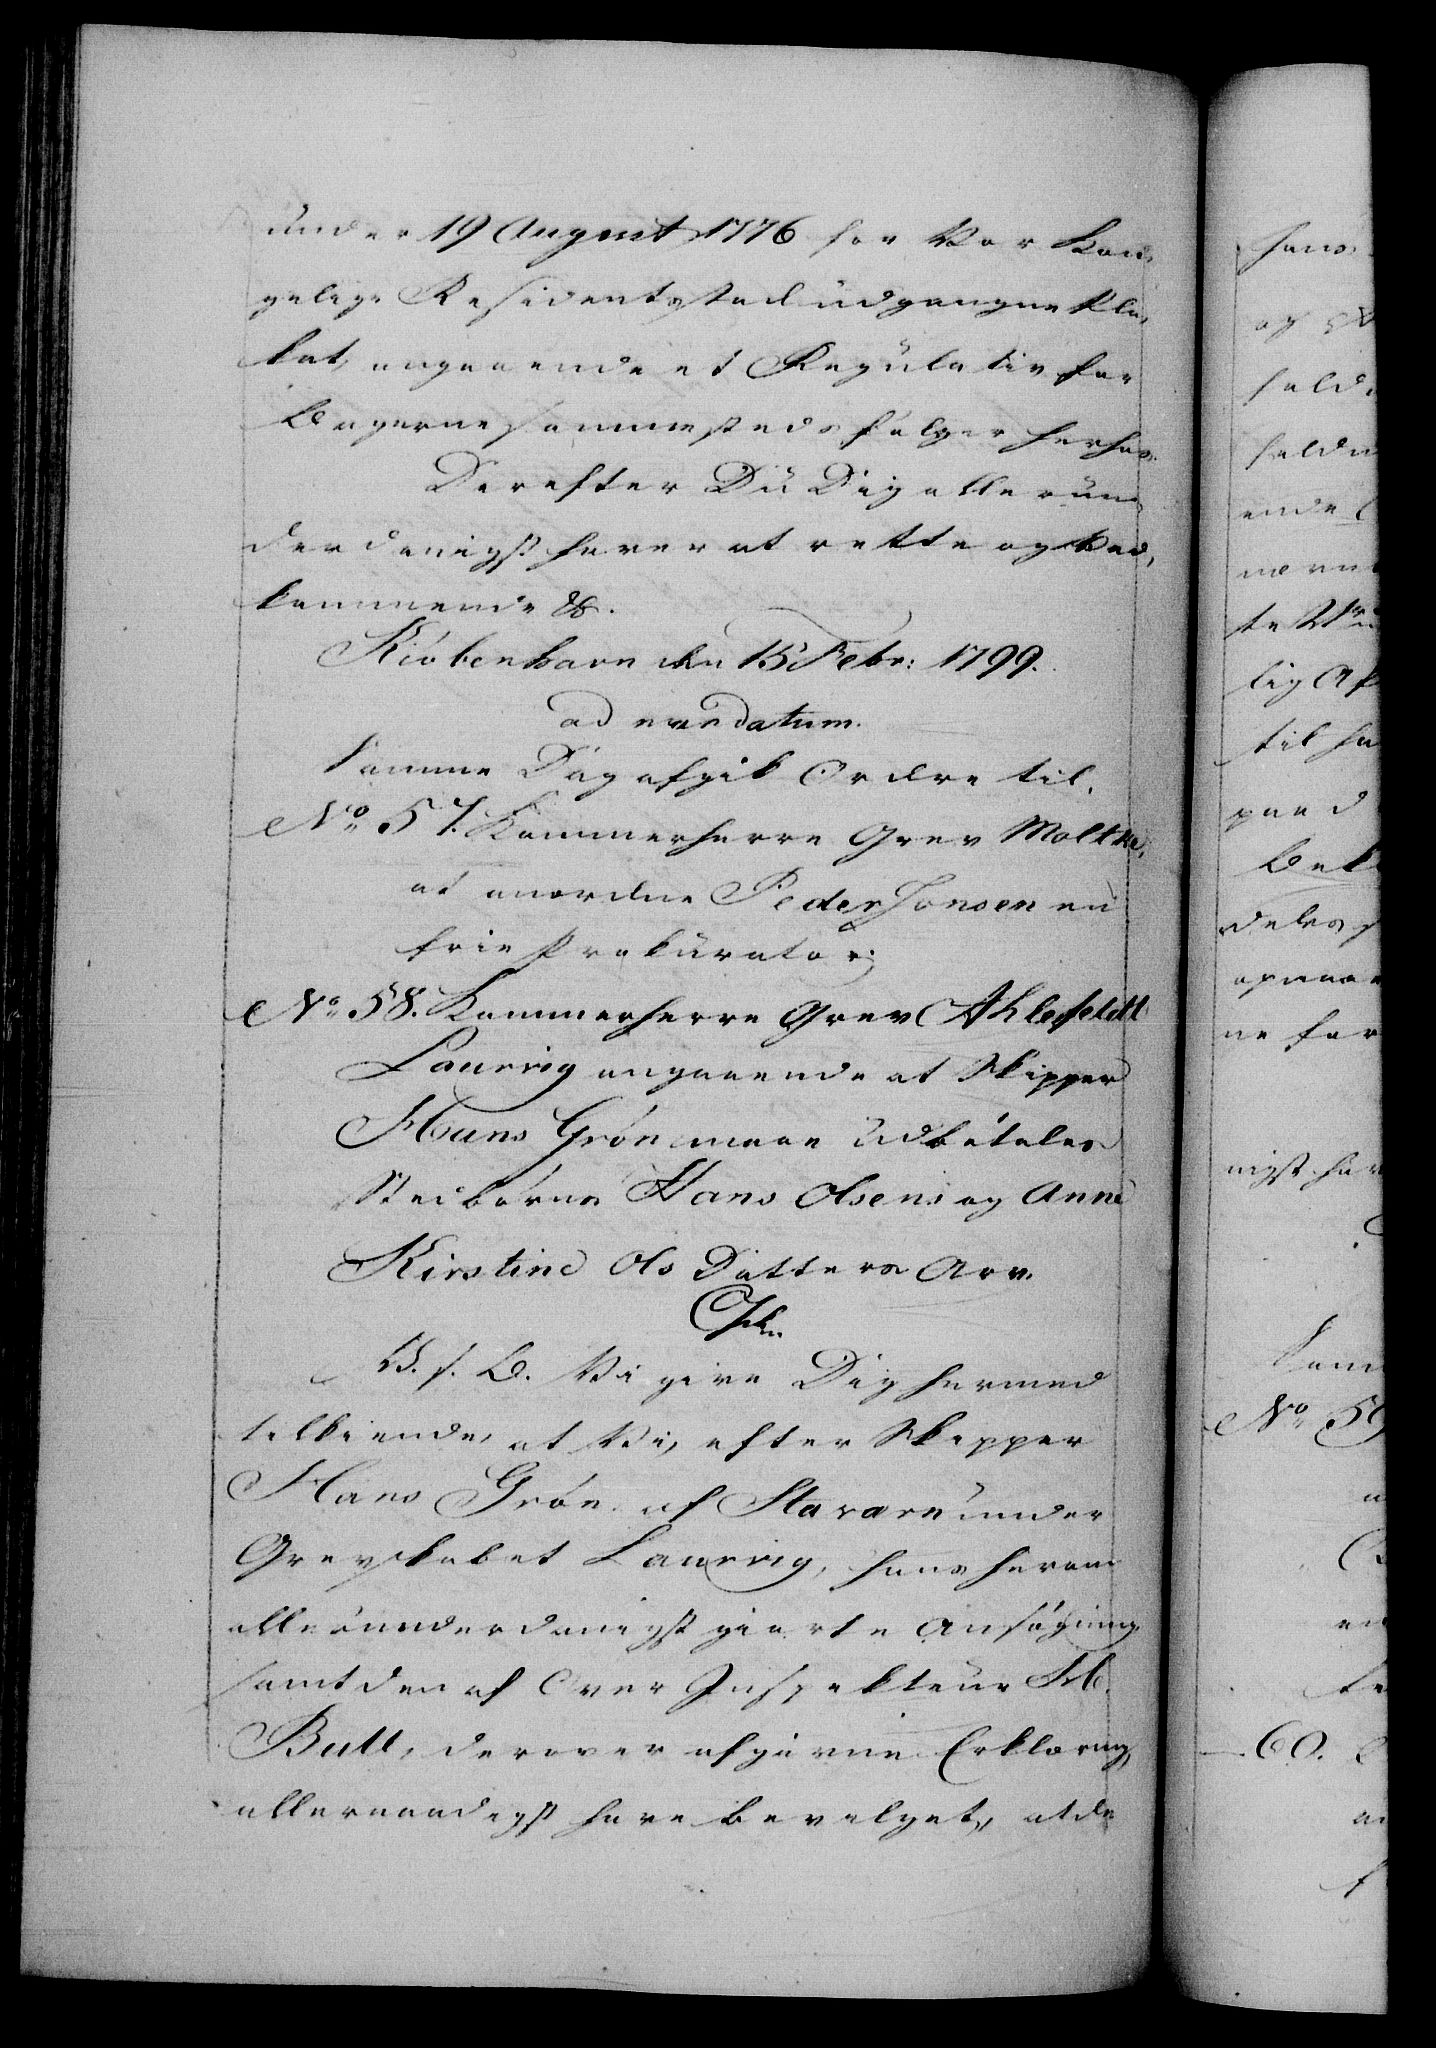 under 19 August 1776 for Vor Kon¬
gelige Residentsstad udgangne Pla¬
kat, angaaende et Regulativ for
Bagerne sammesteds følger herhos.
Derefter Du Dig allerun¬
derdanigst haver at rette og Ved¬
kommende &c.
Kiöbenhavn den 15 Febr: 1799.
ad mandatum.
Samme Dag afgik Ordre til.
No 57. Kammerherre Grev Moltke,
at anordne Peder Jonsen en
frie Prokurator.
No 58. Kammerherre Grev Ahlefeldt
Laurvig angaaende at Skipper
Hans Grön maae udbetales
Stedbørns Hans Olsens og Anne
Kirstine Ols Datters Arv.
V. s. B. Vi give Dig hermed
tilkiende, at Vi, efter Skipper
Hans Grön af Staværn under
Grevskabet Laurvig, hans herom
allerunderdanigst giorte Ansøgning
samt den af Over Inspekteur M.
Bull, derover afgivne Erklæring,
allernaadigst have bevilget, at de
hans
til
No 59
60.